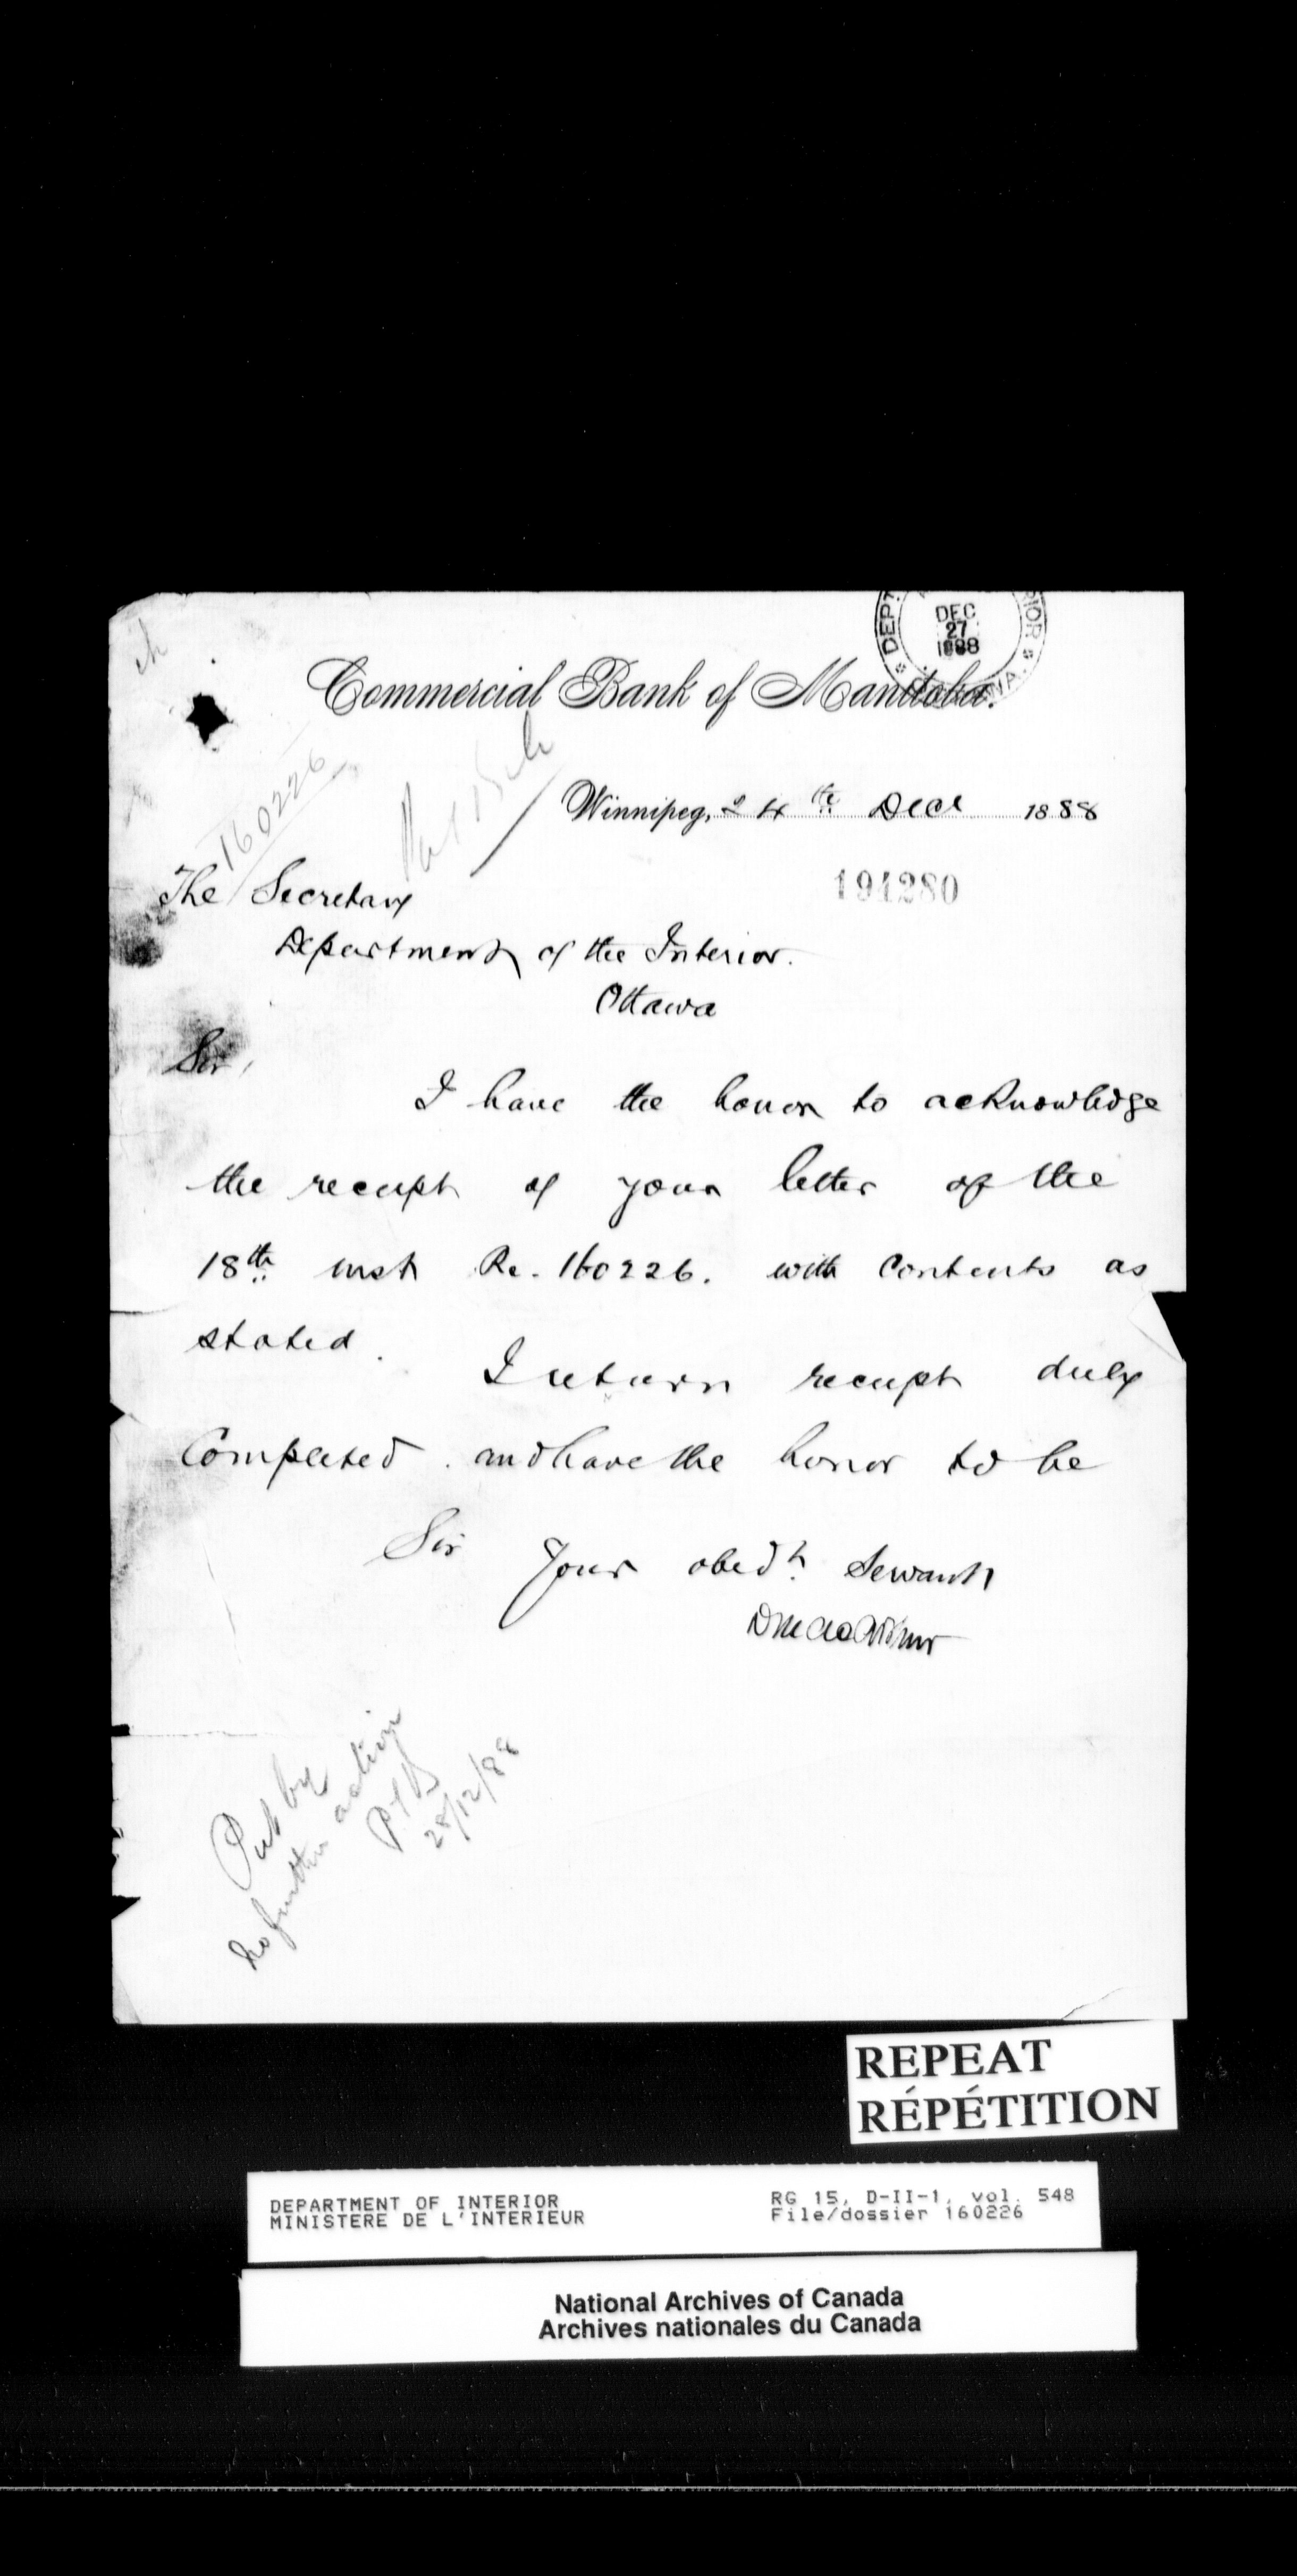 DEC
27
1888
Commercial Bank of Manitoba.
160226
Winnipeg, 24th Dece 1888
194280
The Secretary
Department of the Interior.
Ottawa
Sir,
I have the honor to acknowledge
the receipt of your letter of the
18th inst Re. 160226. with contents as
stated.
I return receipt duly
Completed. and have the honor to be
Sir
Your obedt. Servant
D MacArthur
Put by
No further action
28/12/88
REPEAT
RÉPÉTITION
DEPARTMENT OF INTERIOR
MINISTERE DE L'INTERIEUR
RG 15, D-II-1, vol. 548
File/dossier 160226
National Archives of Canada
Archives nationales du Canada